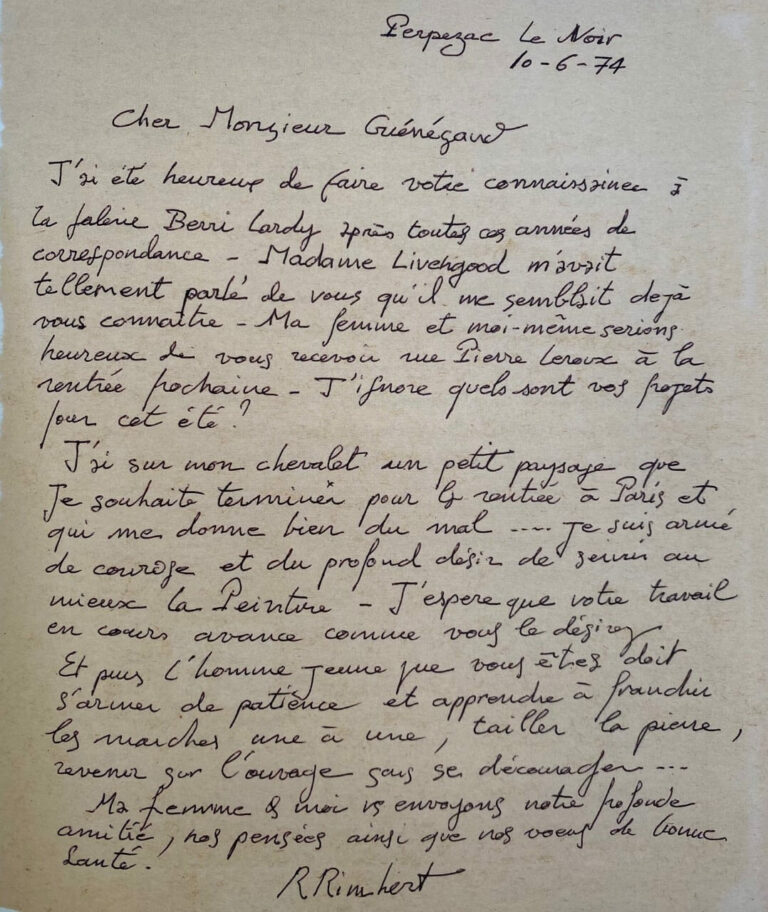 Perpezac Le Noir
10-6-74
Cher Monsieur Guénégaud
J'ai été heureux de faire votre connaissance à
la galerie Berri Lardy après toutes ces années de
correspondance - Madame Livengood m'avait
tellement parlé de vous qu'il me semblait dejà
vous connaître - Ma femme et moi-même serions
heureux de vous recevoir rue Pierre Leroux à la
rentrée prochaine - J'ignore quels sont vos projets
pour cet été ?
J'ai sur mon chevalet un petit paysage que
je souhaite terminer pour la rentrée à Paris et
qui me donne bien du mal .... je suis armé
de courage et du profond désir de servir au
mieux la Peinture - J'espere que votre travail
en cours avance comme vous le désirez
Et puis l'homme jeune que vous êtes doit
s'armer de patience et apprendre à franchir
les marches une à une, tailler la pierre,
revenir sur l'ouvrage sans se décourager ...
Ma femme & moi vs envoyons notre profonde
amitié, nos pensées ainsi que nos voeux de bonne
santé.
R Rimbert